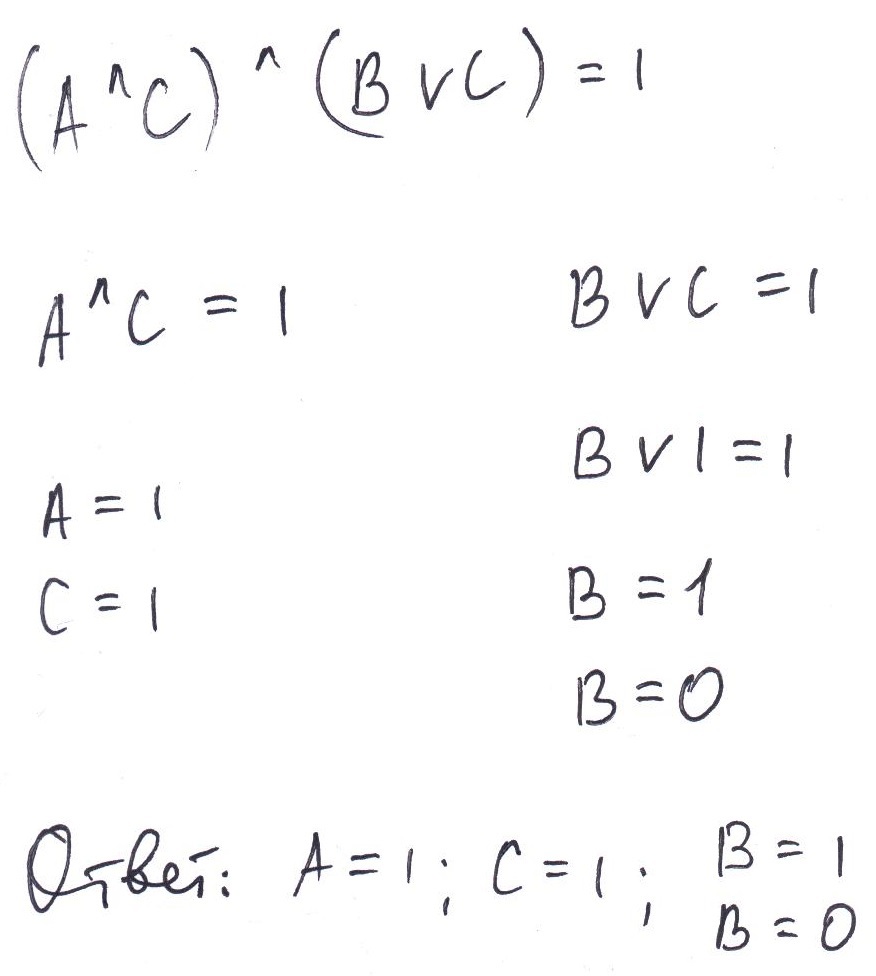 (A ^ C) ^ (B V C) = 1
A ^ C = 1
B V C = 1
A = 1
C = 1
B V 1 = 1
B = 1
B = 0
Ответ: A = 1; C = 1; B = 1
B = 0